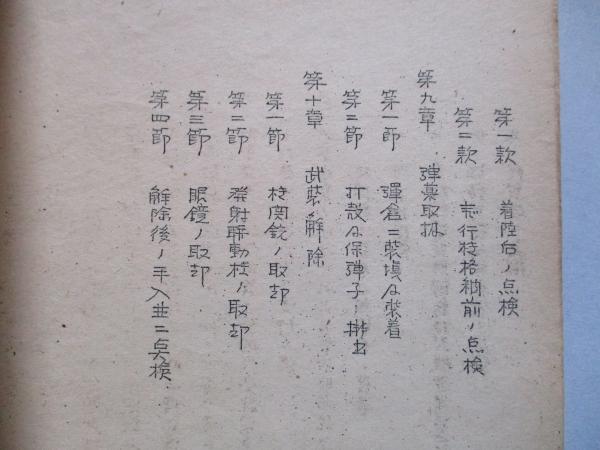 第一款 着陸后ノ点検
第二款 飛行機格納前ノ点検
第九章 弾薬取扱
第一節 弾倉ニ装填及装着
第二節 打殻及保弾子ノ排出
第十章 武装ノ解除
第一節 機関銃ノ取卸
第二節 発射聯動機ノ取卸
第三節 眼鏡ノ取卸
第四節 解除後ノ手入並ニ点検